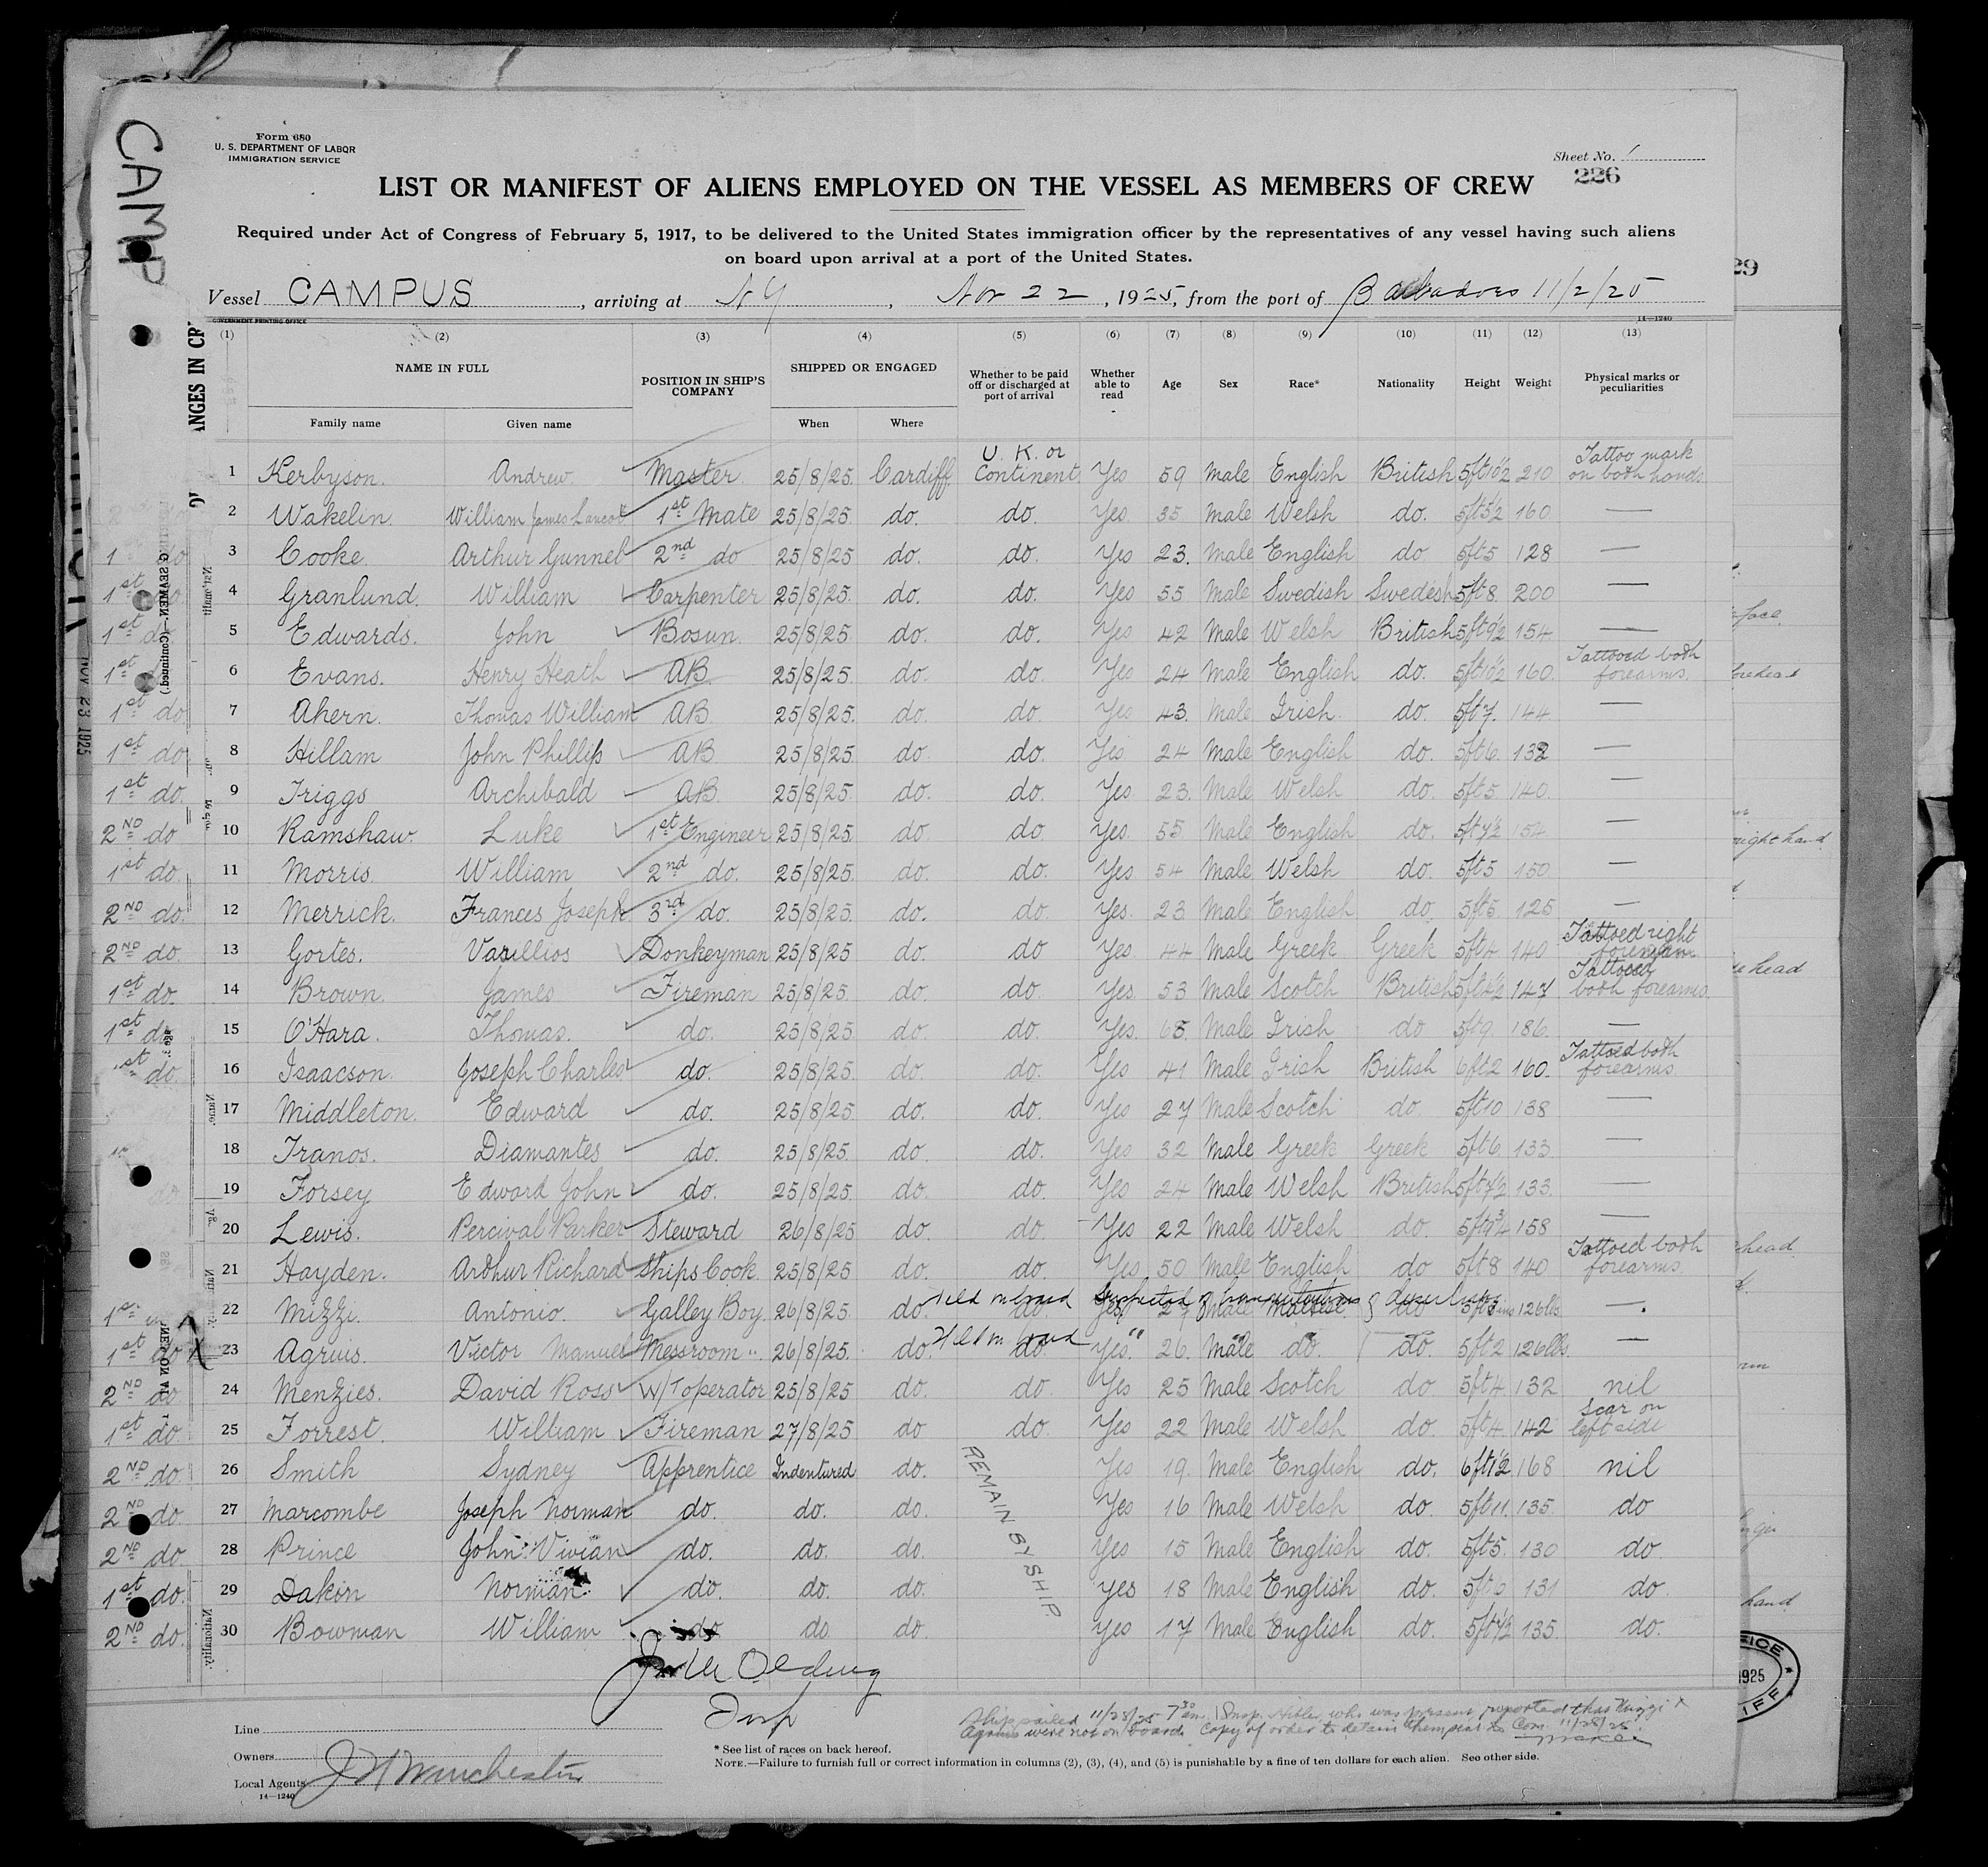 CAMP
Form 680
U. S. DEPARTMENT OF LABOR
IMMIGRATION SERVICE
Sheet No. 1
226
LIST OR MANIFEST OF ALIENS EMPLOYED ON THE VESSEL AS MEMBERS OF CREW
Required under Act of Congress of February 5, 1917, to be delivered to the United States immigration officer by the representatives of any vessel having such aliens
on board upon arrival at a port of the United States.
29
Vessel CAMPUS, arriving at NY, Nov 22, 1925, from the port of Barbados 11/2/25
GOVERNMENT PRINTING OFFICE 14—1240
(1) (2) (3) (4) (5) (6) (7) (8) (9) (10) (11) (12) (13)
NAME IN FULL POSITION IN SHIP'S COMPANY SHIPPED OR ENGAGED Whether to be paid off or discharged at port of arrival Whether able to read Age Sex Race* Nationality Height Weight Physical marks or peculiarities
Family name Given name When Where
1 Kerbyson. Andrew. Master. 25/8/25. Cardiff U. K. or Continent Yes 59 Male English British 5ft10½ 210 Tattoo mark on both hands
2 Wakelin. William James 1st Mate 25/8/25. do. do. Yes 35 Male Welsh do. 5ft5½ 160 —
3 Cooke. Arthur Gunnel 2nd do 25/8/25 do. do. Yes 23. Male English do 5ft5 128 —
4 Granlund. William Carpenter 25/8/25. do. do. Yes 55 Male Swedish Swedish 5ft8 200 —
5 Edwards. John Bosun. 25/8/25 do. do. Yes 42 Male Welsh British 5ft9½ 154 —
6 Evans. Henry Heath AB 25/8/25. do. do. Yes 24 Male English do. 5ft10½ 160. Tattooed both forearms.
7 Ahern. Thomas William AB 25/8/25. do. do. Yes 43. Male Irish. do. 5ft7. 144 —
8 Hillam John Phillip AB 25/8/25. do. do. Yes 24 Male English do. 5ft6. 132 —
9 Triggs Archibald AB 25/8/25. do. do. Yes 23. Male Welsh do. 5ft5 140. —
10 Ramshaw. Luke 1st Engineer 25/8/25. do. do. Yes. 55 Male English do. 5ft7½ 154 —
11 Morris. William 2nd do. 25/8/25. do. do. Yes. 54 Male Welsh do. 5ft5 150 —
12 Merrick. Frances Joseph 3rd do. 25/8/25. do. do. Yes. 23 Male English do. 5ft5. 125 —
13 Gortes. Vasillios Donkeyman 25/8/25 do. do Yes 44 Male Greek Greek 5ft4 140 Tattoed right forearm
14 Brown. James Fireman 25/8/25. do. do. Yes. 53 Male Scotch British 5ft4½ 147 Tattooed both forearms.
15 O'Hara. Thomas. do. 25/8/25. do. do. Yes. 65. Male Irish do 5ft9. 186. —
16 Isaacson. Joseph Charles do. 25/8/25. do. do. Yes 41 Male Irish British 6ft2 160. Tattoed both forearms
17 Middleton. Edward do. 25/8/25. do. do. Yes 27 Male Scotch do. 5ft10 138 —
18 Tranos. Diamantes do. 25/8/25. do. do. Yes 32 Male Greek Greek 5ft6. 133 —
19 Forsey Edward John do. 25/8/25. do. do. Yes 24 Male Welsh British 5ft7½ 133. —
20 Lewis. Percival Parker Steward 26/8/25 do. do. Yes 22 Male Welsh do. 5ft9¾ 158 —
21 Hayden. Arthur Richard Ships Cook. 25/8/25 do. do. Yes 50 Male English do 5ft8 140 Tattoed both forearms.
22 Mizzi. Antonio. Galley Boy. 26/8/25. do. Held on board do. Yes 27 Male Maltese do 126lbs. —
23 Agrius. Victor Manuel Messroom " 26/8/25. do. Held on board do. Yes. " 26. Male do. do. 5ft2 126lbs. —
24 Menzies. David Ross W/T operator 25/8/25 do. do. Yes 25 Male Scotch do. 5ft4. 132 nil
25 Forrest. William Fireman 27/8/25 do do. Yes 22 Male Welsh do. 5ft4. 142 Scar on left side
26 Smith Sydney Apprentice Indentured do. Yes 19. Male English do. 6ft1½ 168 nil
27 Marcombe Joseph Norman do. do. do. Yes 16 Male Welsh do. 5ft11. 135 do
28 Prince John Vivian do. do. do. Yes 15 Male English do. 5ft5. 130 do
29 Dakin Norman do. do. do. yes 18 Male English do. 5ft6 131 do
30 Bowman William do do do. yes 17 Male English do. 5ft7½ 135. do.
REMAIN BY SHIP.
Insp
Ship sailed 11/28/25 7 30 am. Insp. who was present reported that Mizzi &
Agrius were not on board. Copy of order to detain them 11/28/25
Line
Owners
Local Agents J H Winchester
14—1240
* See list of races on back hereof.
NOTE.—Failure to furnish full or correct information in columns (2), (3), (4), and (5) is punishable by a fine of ten dollars for each alien. See other side.